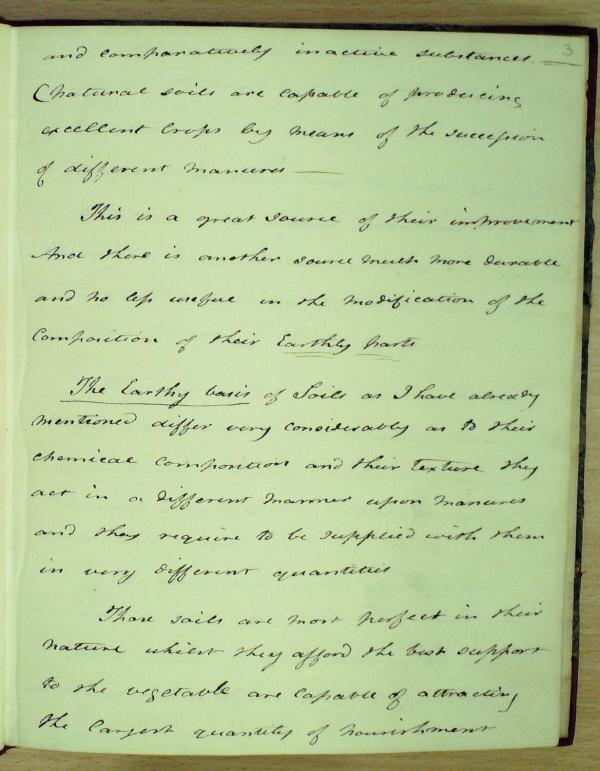 3
and comparatively inactive substances. —
(natural soils are capable of producing
excellent crops by means of the succession
of different manures —
This is a great source of their improvement
And there is another source much more durable
and no less useful in the modification of the
Composition of their Earthly parts
The Earthy basis of Soils as I have already
mentioned differ very considerably as to their
chemical composition and their texture they
act in a different manner upon manures
and they require to be supplied with them
in very different quantities
Those soils are most perfect in their
nature whilst they afford the best support
to the vegetable are capable of attracting
the largest quantity of nourishment